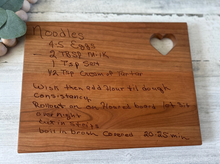 Noodles
4-5 Eggs
2 TBSP Milk
1 Tsp Salt
1/2 Tsp Cream of Tartar
Wish then add flour til dough
consistancy
Rollout on any floured board let sit
overnight
Cut in strips
boil in broth Covered 20-25 min.